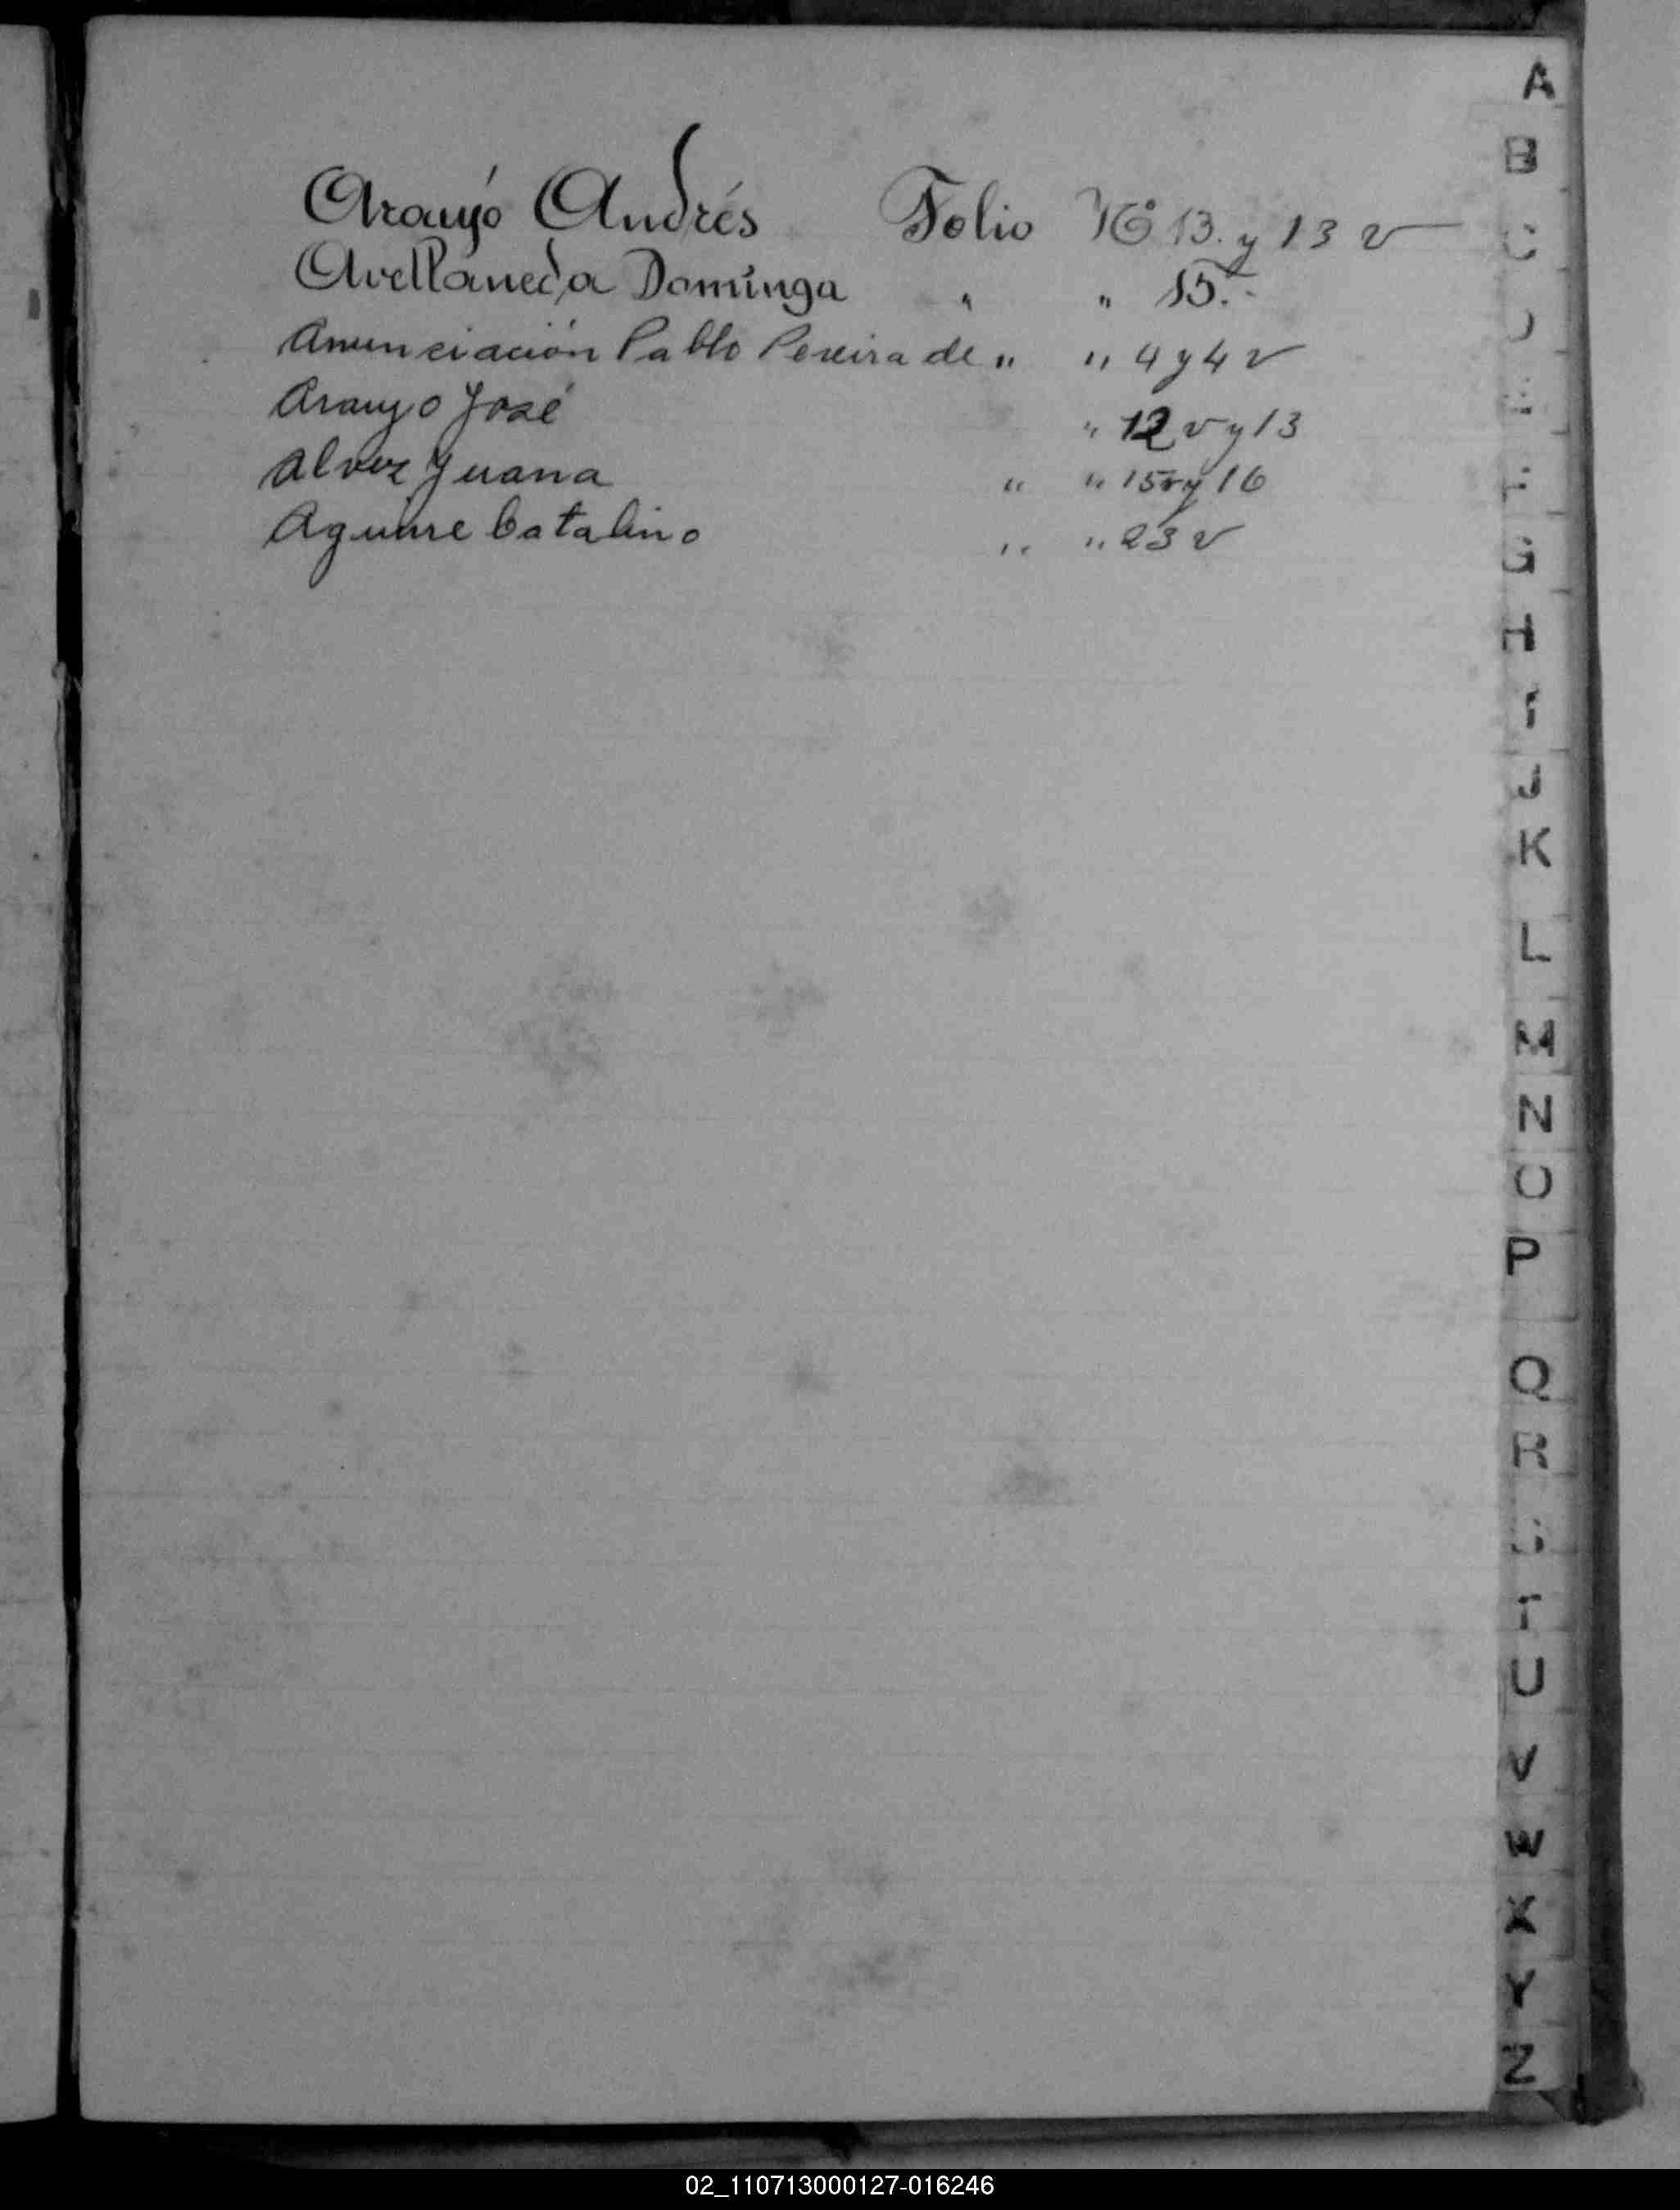 Araujó Andrés Folio Nº 13. y 13 v
Avellaneda Dominga " " 15.-
Anunciación Pablo Pereira de " " 4 y 4 v
Araujo José " 12 v y 13
Alvez Juana " " 15v y 16
Aguirre Catalino " " 23 v
A
B
C
D
E
F
G
H
I
J
K
L
M
N
O
P
Q
R
S
T
U
V
W
X
Y
Z
02_110713000127-016246